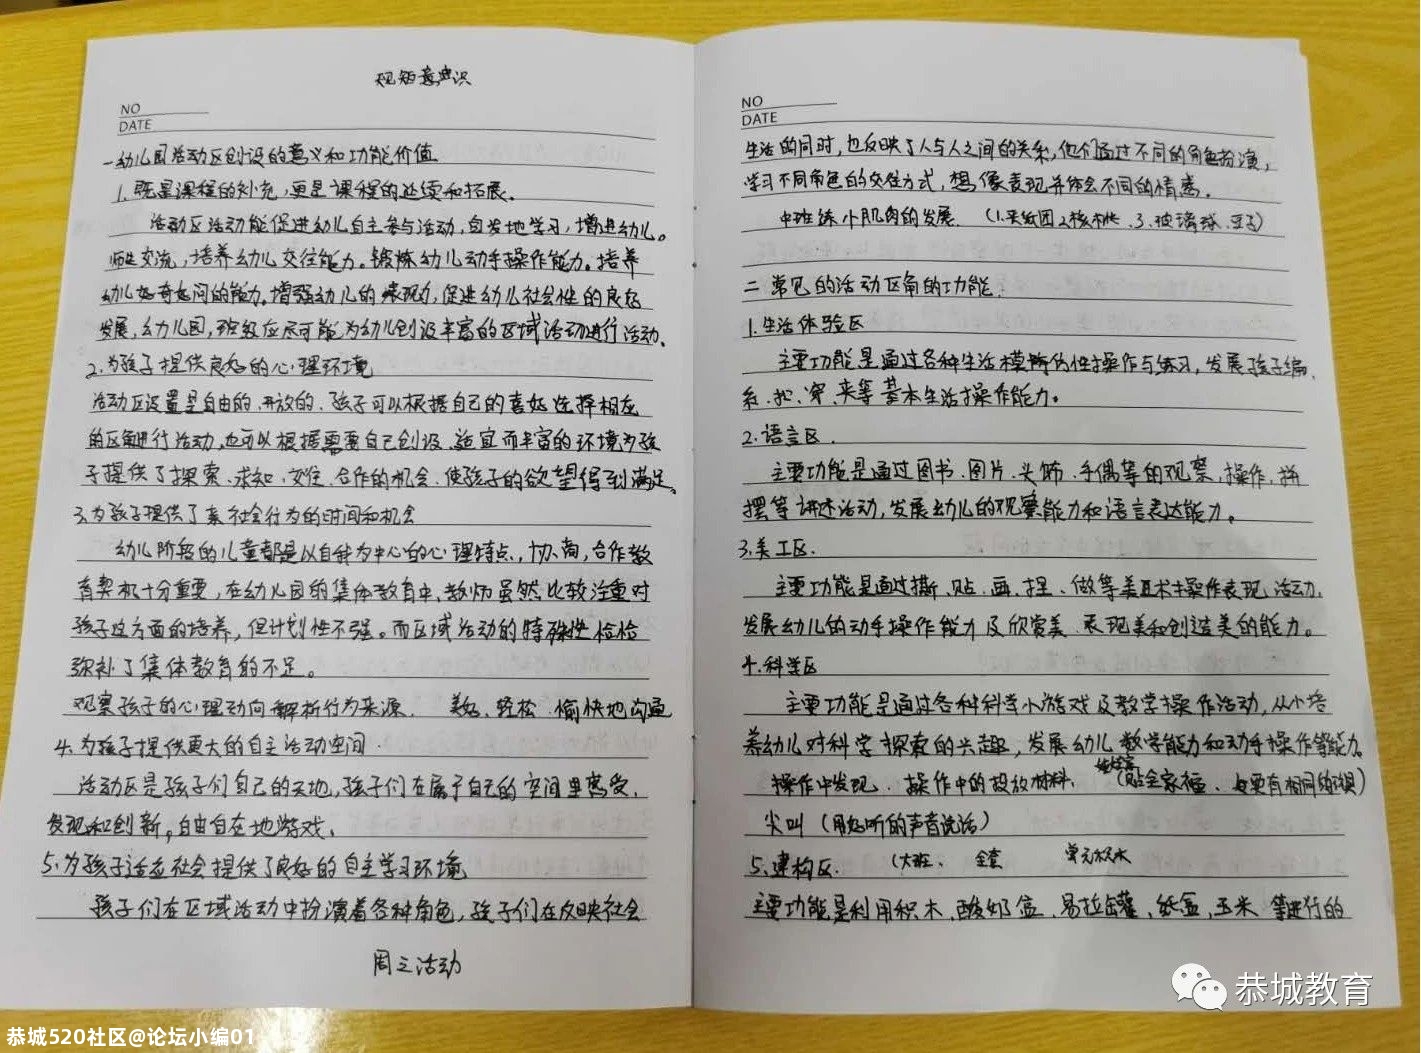 规矩意识
NO
DATE
一幼儿园活动区创设的意义和功能价值
1. 既是课程的补充,更是课程的延续和拓展。
活动区活动能促进幼儿自主参与活动,自发地学习,增进幼儿。
师生交流,培养幼儿交往能力。锻炼幼儿动手操作能力。培养
幼儿好奇好问的能力。增强幼儿的表现力,促进幼儿社会性的良好
发展,幼儿园,班级应尽可能为幼儿创设丰富的区域活动进行活动。
2.为孩子提供良好的心理环境
活动区设置是自由的、开放的、孩子可以根据自己的喜好选择相应
的区角进行活动,也可以根据需要自己创设、适宜而丰富的环境为孩
子提供了探索、求知、交往、合作的机会、使孩子的欲望得到满足。
3.为孩子提供了亲社会行为的时间和机会
幼儿阶段的儿童都是以自我为中心的心理特点,协商,合作教
育契机十分重要,在幼儿园的集体教育中,教师虽然比较注重对
孩子这方面的培养,但计划性不强。而区域活动的特殊性恰恰
弥补了集体教育的不足。
观察孩子的心理动向 解析行为来源. 美好、轻松、愉快地沟通
4.为孩子提供更大的自主活动空间
活动区是孩子们自己的天地,孩子们在属于自己的空间里感受、
发现和创新,自由自在地游戏、
5.为孩子适应社会提供了良好的自主学习环境
孩子们在区域活动中扮演着各种角色,孩子们在反映社会
周三活动
NO
DATE
生活的同时,也反映了人与人之间的关系,他们通过不同的角色扮演,
学习不同角色的交往方式,想像表现并体会不同的情感。
中班练小肌肉的发展. (1.夹纸团 2.核桃 .3.玻璃球、豆子)
二 常见的活动区角的功能.
1.生活体验区
主要功能是通过各种生活模仿性操作与练习,发展孩子编、
系、扣、穿、夹等基本生活操作能力。
2.语言区.
主要功能是通过图书、图片、头饰、手偶等的观察,操作,拼
摆等讲述活动,发展幼儿的观察能力和语言表达能力。
3.美工区.
主要功能是通过撕、贴、画、捏、做等美术操作表现活动,
发展幼儿的动手操作能力及欣赏美、表现美和创造美的能力。
4.科学区
主要功能是通过各种科学小游戏及数学操作活动,从小培
养幼儿对科学探索的兴趣,发展幼儿数学能力和动手操作等能力。
操作中发现、操作中的投放材料、 (贴全家福、
尖叫 (用好听的声音说话)
5.建构区. (大班、 全套 单元积木
主要功能是利用积木、酸奶盒、易拉罐、纸盒、玉米 等进行的
恭城教育
恭城520社区@论坛小编01